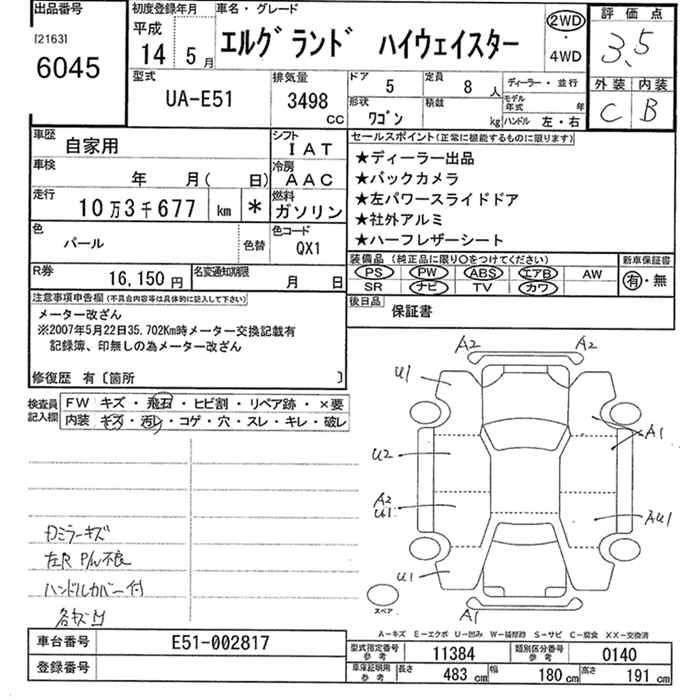 出品番号
[2163]
6045
初度登録年月
平成
14 5 月
車名・グレード
エルグランド ハイウェイスター
2WD
・
4WD
評価点
3.5
外装 内装
C B
型式
UA-E51
排気量
3498
CC
ドア
5
定員
8 人
ディーラー・並行
形状
ワゴン
積載
kg
モデル年式 年
ハンドル 左・右
車歴
自家用
シフト
IAT
車検
年 月( 日)
冷房
AAC
走行
10万3千677 km *
燃料
ガソリン
色
パール
色替
色コード
QX1
R券
16,150 円
名変通知期限
月 日
セールスポイント(正常に機能するものに限ります)
★ディーラー出品
★バックカメラ
★左パワースライドドア
★社外アルミ
★ハーフレザーシート
装備品(純正品に限り○をつけてください)
PS PW ABS エアB AW
SR ナビ TV カワ
新車保証書
有・無
後日品
保証書
注意事項申告欄(不具合内容等は具体的に記入して下さい)
メーター改ざん
※2007年5月22日35,702Km時メーター交換記載有
記録簿、印無しの為メーター改ざん
修復歴 有〔箇所 〕
検査員
記入欄
FW キズ・飛石・ヒビ割・リペア跡・×要
内装 キズ・汚レ・コゲ・穴・スレ・キレ・破レ
ミラーキズ
左R P/W不良
ハンドルカバー付
A2 A2
U1
A1
U2
A2
U1
AU1
U1
A1
スペア
A-キズ E-エクボ U-凹み W-補修跡 S-サビ C-腐食 XX-交換済
車台番号
E51-002817
登録番号
型式指定番号
参考
11384
類別区分番号
参考
0140
車庫証明用
参考
長さ 483 cm
幅 180 cm
高さ 191 cm